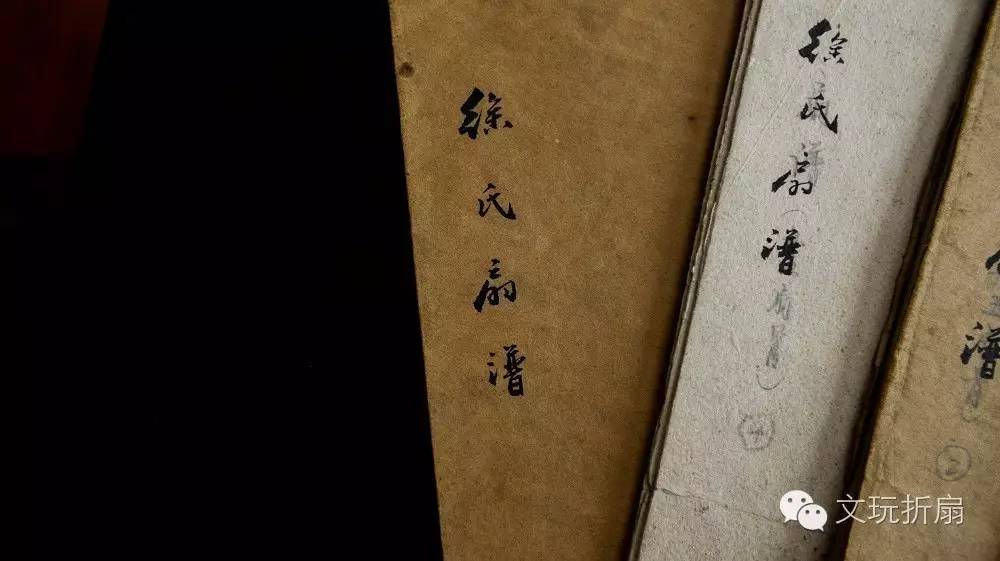 徐氏扇谱
徐氏扇谱
谱
2
文玩折扇